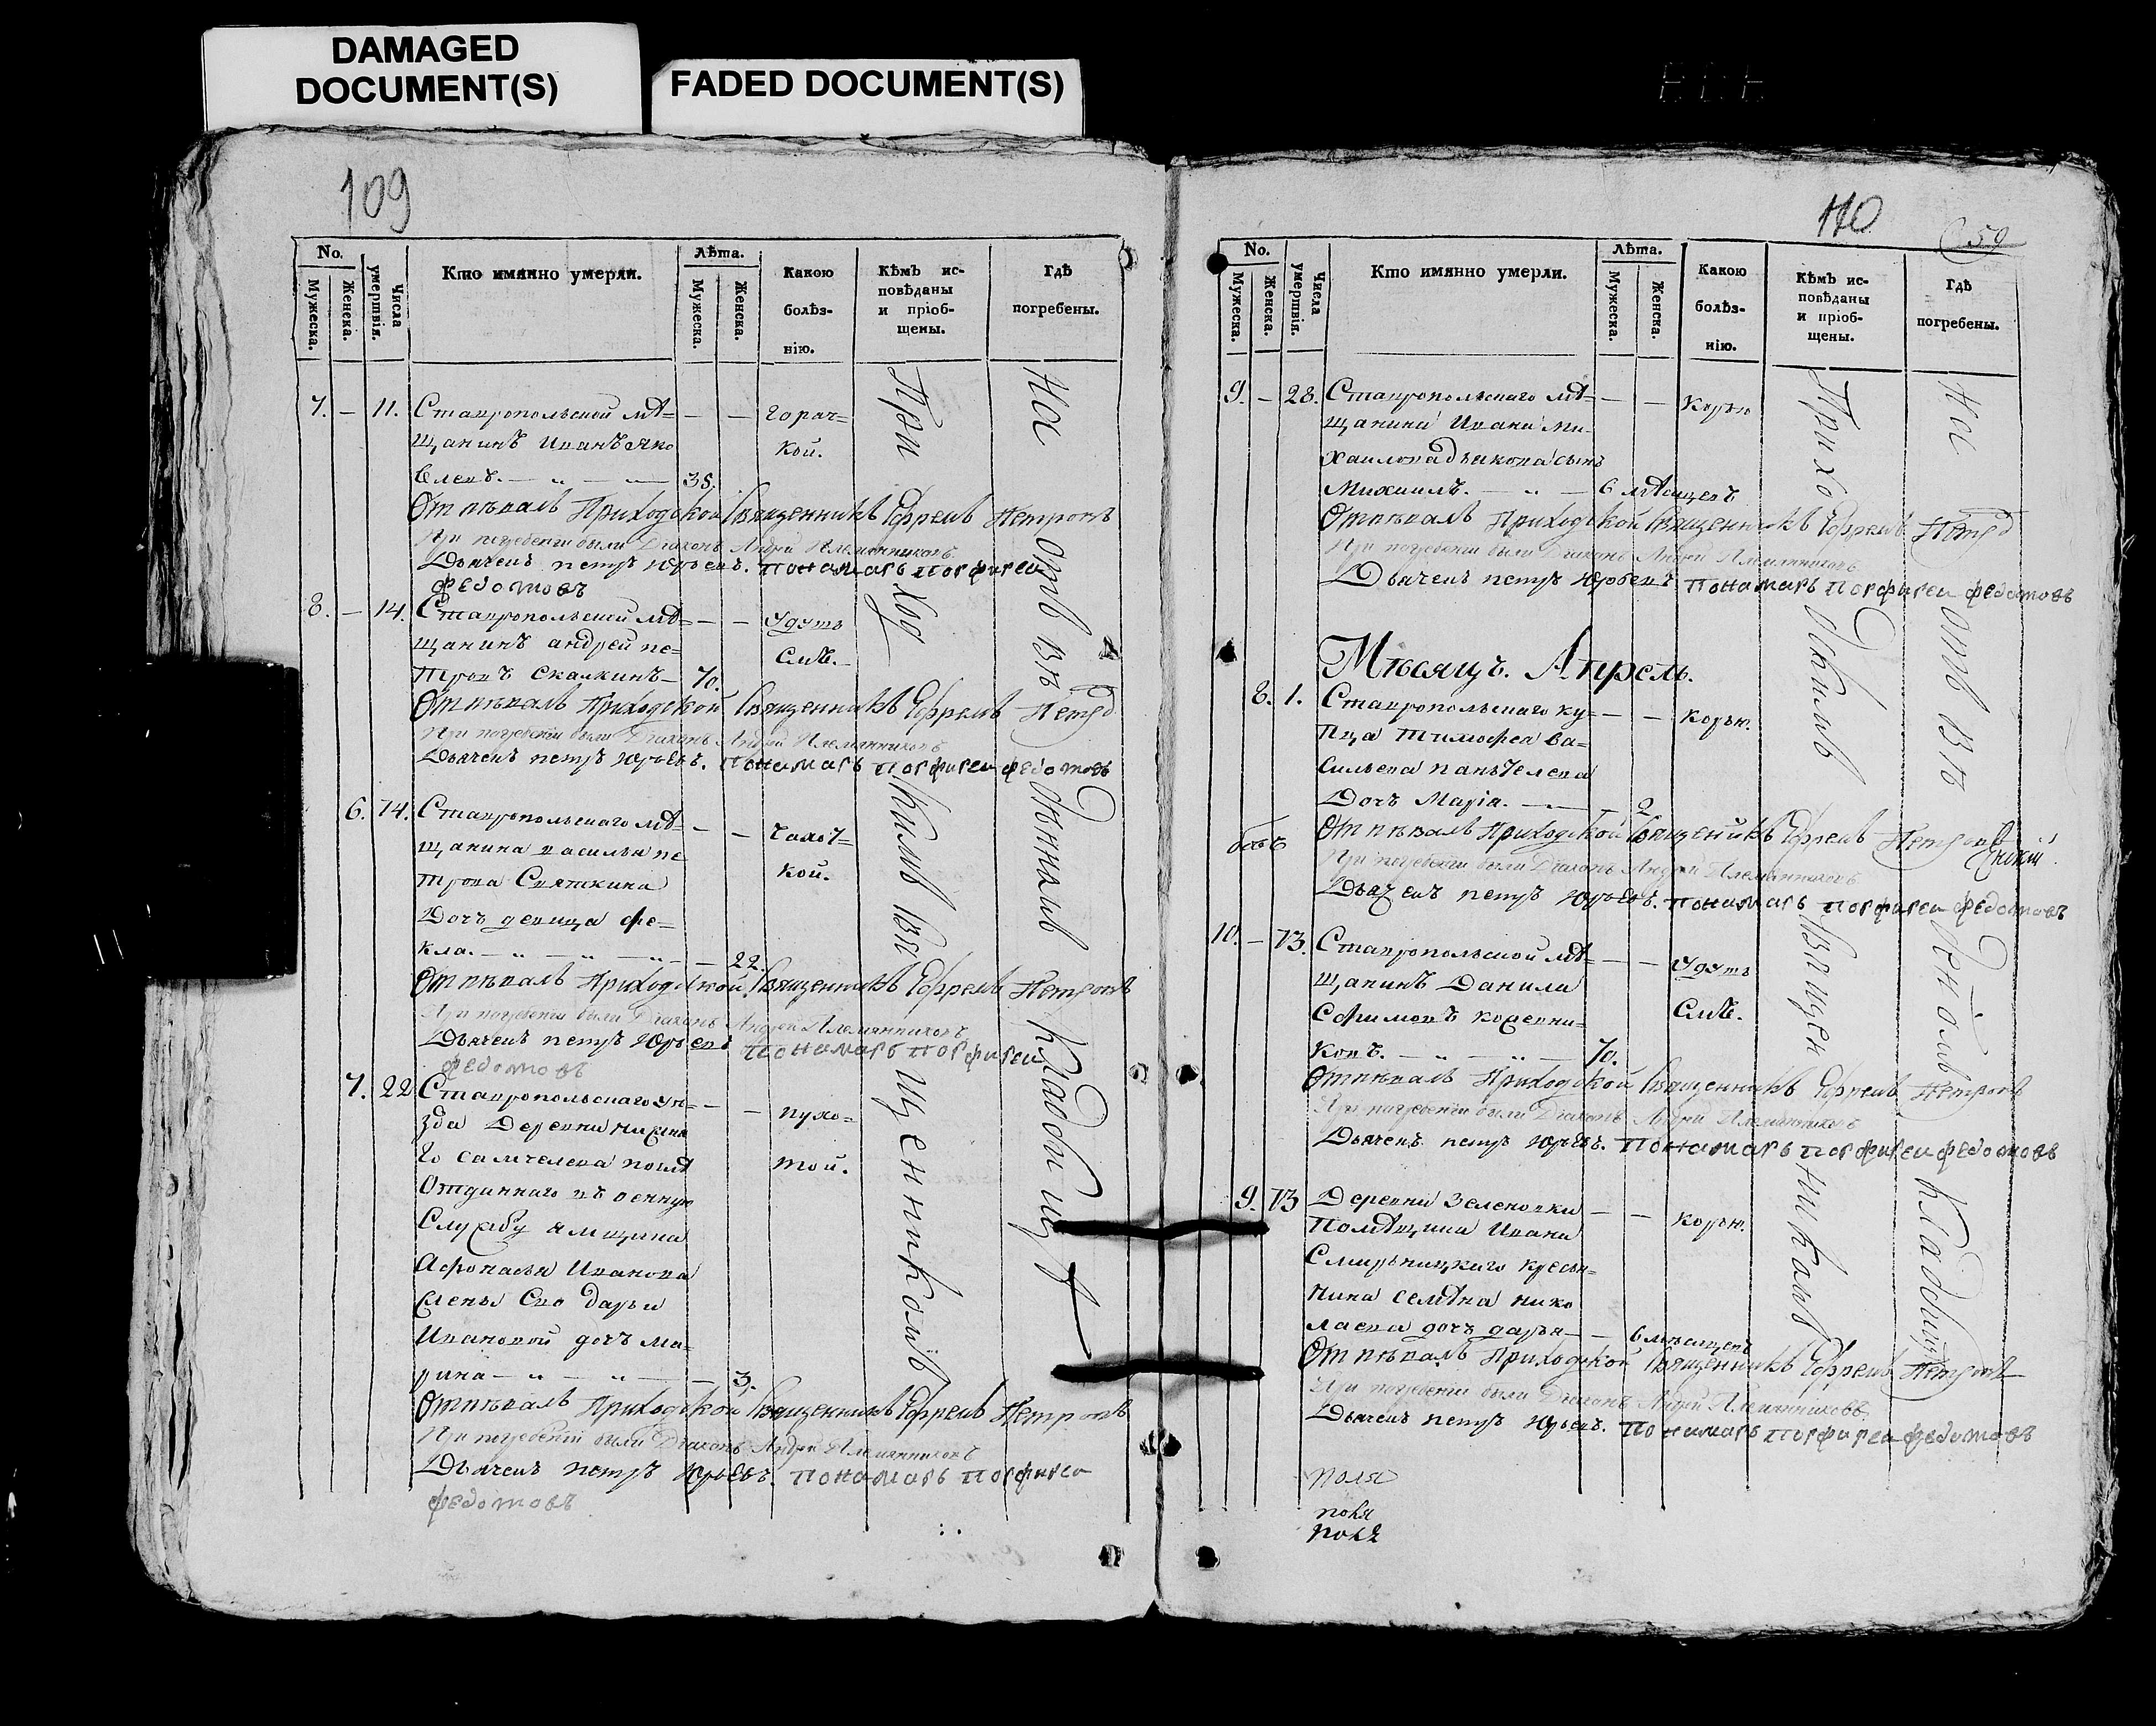 DAMAGED
DOCUMENT(S)
FADED DOCUMENT(S)
109
No.
Мужеска.
Женска.
Числа умертвія.
Кто имянно умерли.
Лѣта.
Мужеска.
Женска.
Какою
болѣз-
нію.
Кѣмъ ис-
повѣданы
и пріоб-
щены.
Гдѣ
погребены.
7. — 11. Ставропольской мѣ= — — горяч=
щанинъ Иванъ Яко кой.
влевъ. — „ — „ — 38.
Отпѣвалъ Приходской Священникъ Ефремъ Петровъ
При погребении были Диаконъ Андрей Племянниковъ
Дьячекъ петръ Юрьевъ. пономарь порфиреи
федотовъ
8. — 14. Ставропольской мѣ= — — Удуш
щанинъ андрей пе= смѣ.
тровъ скалкинъ — 70.
Отпѣвалъ Приходской Священникъ Ефремъ Петро
При погребении были Диаконъ Андрей Племянниковъ
Дьячекъ петръ Юрьевъ. пономарь порфиреи федотовъ
6. 14. Ставропольскаго мѣ= — — чахот=
щанина василья пе кой.
трова
дочь девица фе=
кла. — „ — „ — „ — 22.
Отпѣвалъ Приходской Священникъ Ефремъ Петровъ
При погребении были Диаконъ Андрей Племянниковъ
Дьячекъ петръ Юрьевъ пономарь порфиреи
федотовъ
7. 22 Ставропольскаго уѣ= — — пухо=
зда Деревни
той.
отданнаго въ военную
службу
Афонасья Иванова
жены ево дарьи
Ивановой дочь ма=
рина — „ — „ — — 3.
Отпѣвалъ Приходской Священникъ Ефремъ Петровъ
При погребении были Диаконъ Андрей Племянниковъ
Дьячекъ петръ Юрьевъ. пономарь порфиреи
федотовъ
Приходскимъ Священникомъ
На
кладбищѣ
110
59
No.
Мужеска.
Женска.
Числа умертвія.
Кто имянно умерли.
Лѣта.
Мужеска.
Женска.
Какою
болѣз-
нію.
Кѣмъ ис-
повѣданы
и пріоб-
щены.
Гдѣ
погребены.
9. — 28. Ставропольскаго мѣ= — — Корью
щанина Ивана Ми=
хаилова дьякова сынъ
Михаилъ. — „ — 6 мѣсяцевъ
Отпѣвалъ Приходской Священникъ Ефремъ Петро
При погребении были Диаконъ Андрей Племянниковъ
Дьячекъ петръ Юрьевъ пономарь порфиреи федотовъ
Мѣсяцъ. Апрель.
8. 1. Ставропольскаго ку= — — корью.
пца тимофея ва=
сильева
дочь Марія. — — 2
Отпѣвалъ Приходской Священникъ Ефремъ Петровъ
При погребении были Диаконъ Андрей Племянниковъ
Дьячекъ петръ Юрьевъ. пономарь порфиреи федотовъ
10. — 13. Ставропольской мѣ= — — Удуш
щанинъ Данила смѣ.
Ефимовъ кожевни=
ковъ. — „ — „ — 70.
Отпѣвалъ Приходской Священникъ Ефремъ Петровъ
При погребении были Диаконъ Андрей Племянниковъ
Дьячекъ петръ Юрьевъ. пономарь порфиреи федотовъ
9. 13 Деревни Зеленовки — — корью.
помѣщика Ивана
Смирницкаго кресья=
нина семѣна нико
лаева дочь дарья — — 6 мѣсяцевъ
Отпѣвалъ Приходской Священникъ Ефремъ Петровъ
При погребении были Диаконъ Андрей Племянниковъ
Дьячекъ петръ Юрьевъ. пономарь порфиреи федотовъ
Приходскимъ Священникомъ
На
кладбищѣ